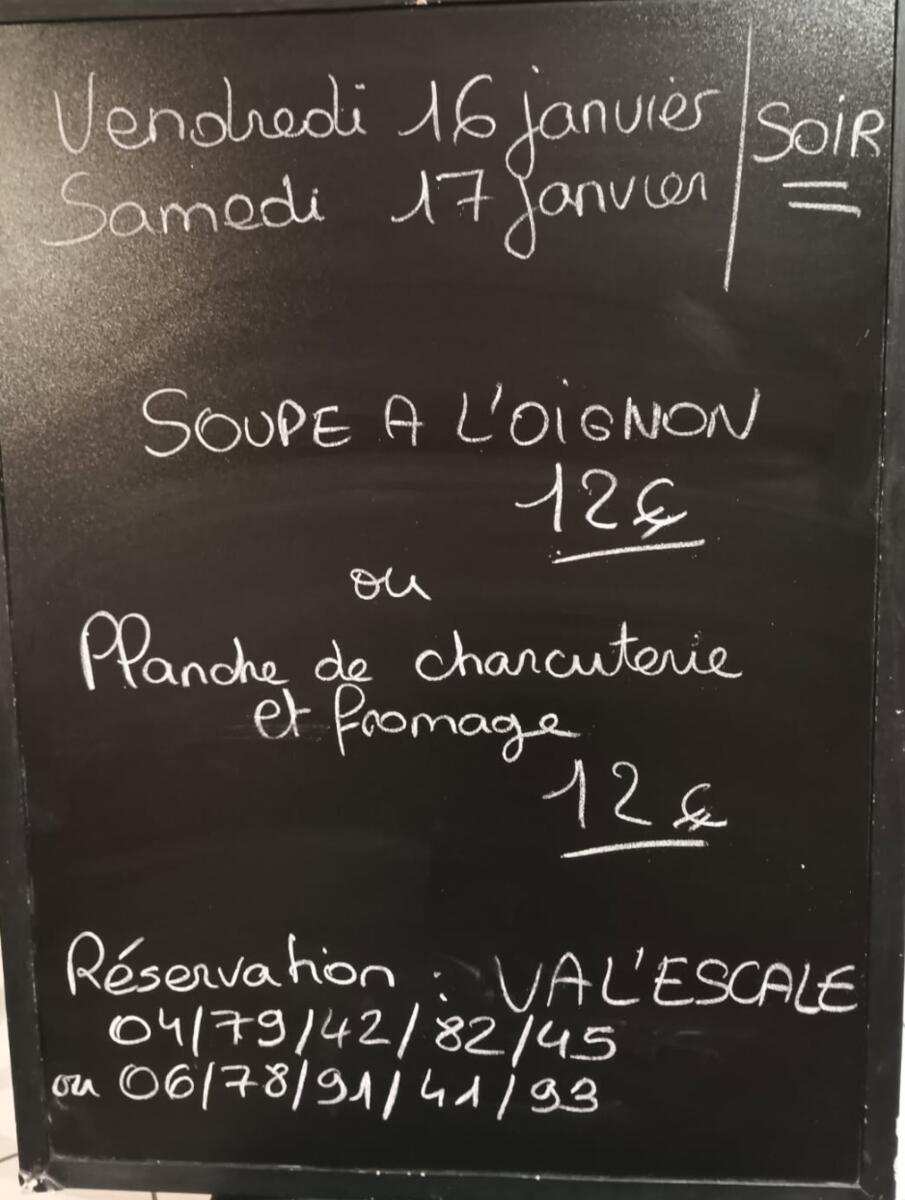 Vendredi 16 janvier | SOIR
Samedi 17 janvier
SOUPE A L'OIGNON
12€
ou
Planche de charcuterie
et fromage
12€
Réservation : VAL'ESCALE
04/79/42/82/45
ou 06/78/91/41/93